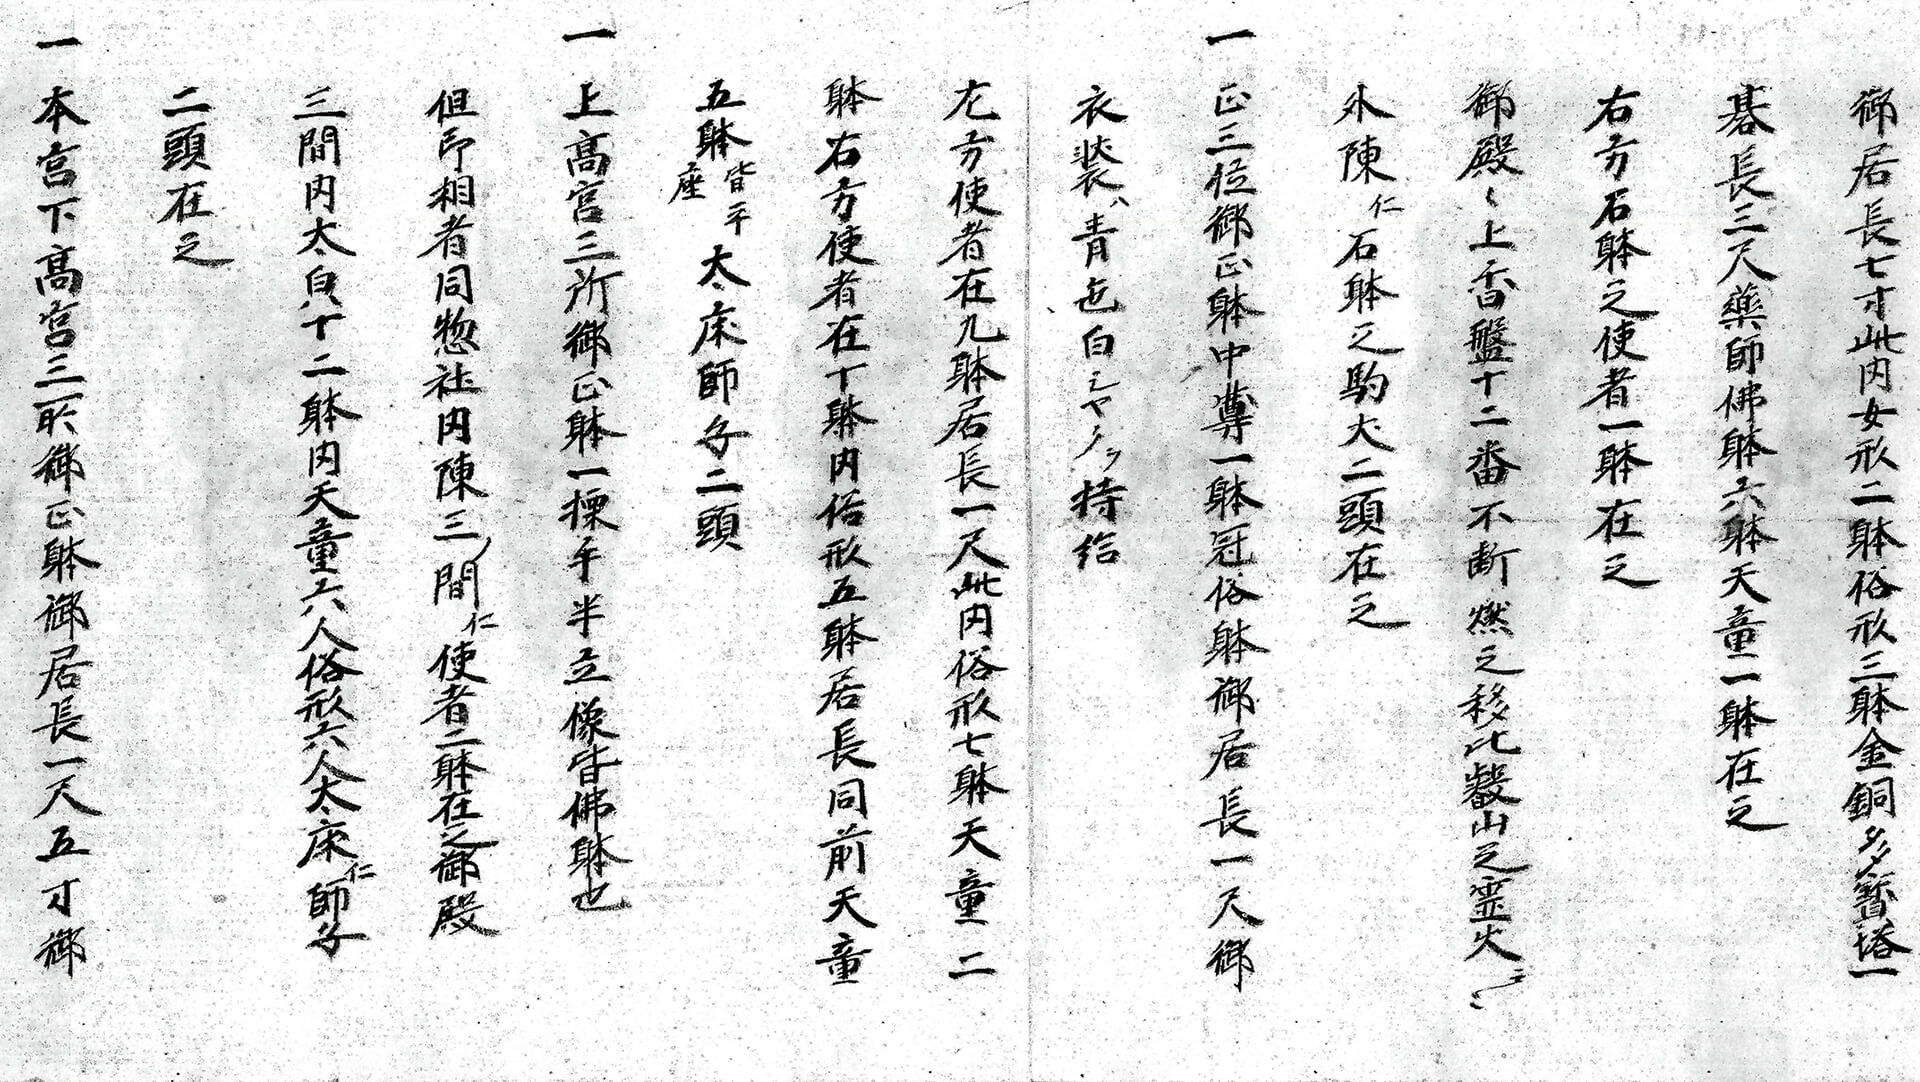 御居長七寸此内女形二躰俗形三躰金銅多寳塔一
基長三尺藥師佛躰六躰天童一躰在之
右方石躰之使者一躰在之
御殿〻上香盤十二番不断燃之移比叡山之霊火
外陳仁石躰之駒犬二頭在之
一 正三位御正躰中尊一躰冠俗躰御居長一尺御
衣装ハ青色白シヤクヲ持給
左方使者在九躰居長一尺此内俗形七躰天童二
躰右方使者在十躰内俗形五躰居長同前天童
五躰皆平座 太床師子二頭
一 上髙宮三所御正躰一操手半立像皆佛躰也
但印相者同惣社内陳三ノ間仁使者二躰在之御殿
三間内太良十二躰内天童六人俗形六人太床仁師子
二頭在之
一 本宮下髙宮三所御正躰御居長一尺五寸御